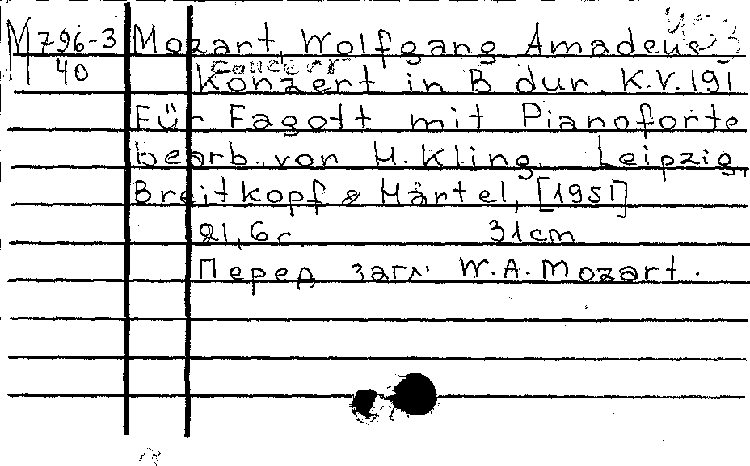 М 796-3 Mozart, Wolfgang Amadeus
40
Konzert in B dur. K.V.191
Für Fagott mit Pianoforte
bearb. von H. Kling. Leipzig,
Breitkopf & Härtel, [1951]
21,6 с. 31cm
Перед загл. W.A. Mozart.